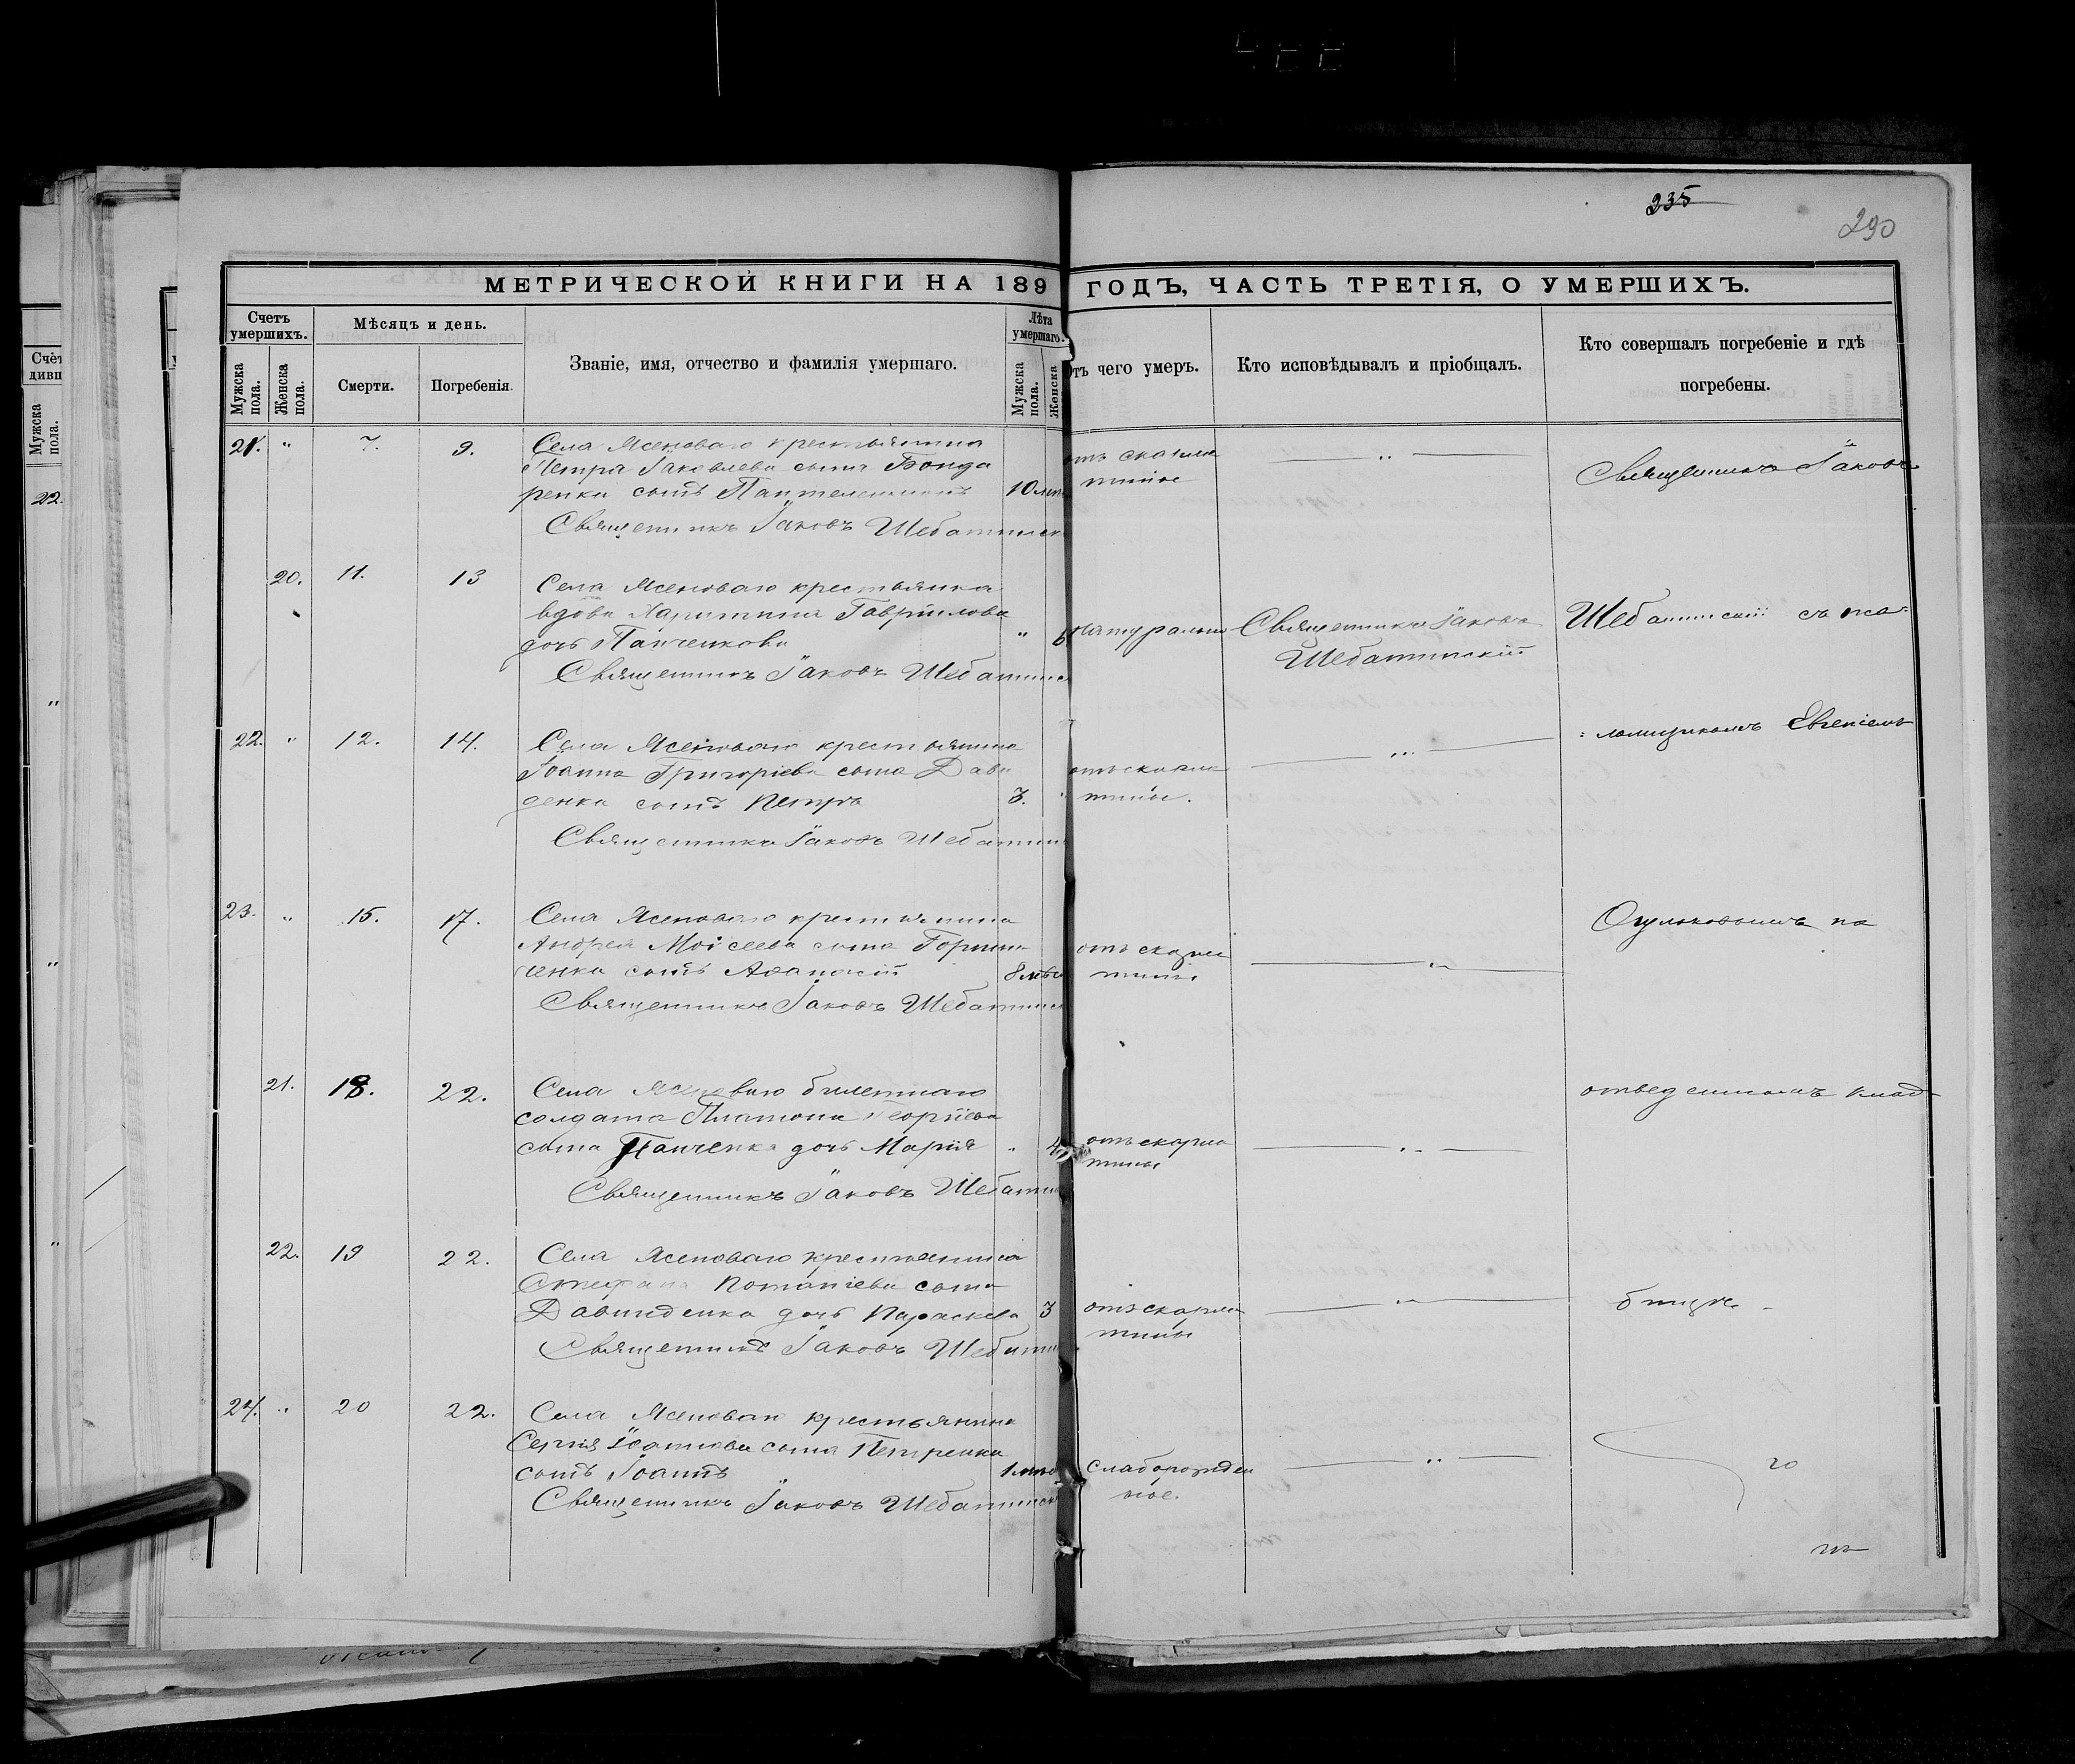 235
290
МЕТРИЧЕСКОЙ КНИГИ НА 189 ГОДЪ, ЧАСТЬ ТРЕТІЯ, О УМЕРШИХЪ.
Счетъ умершихъ.
Мужска пола.
Женска пола.
Мѣсяцъ и день.
Смерти.
Погребенія.
Званіе, имя, отчество и фамилія умершаго.
Лѣта умершаго.
Мужска пола.
Женска
Отъ чего умеръ.
Кто исповѣдывалъ и пріобщалъ.
Кто совершалъ погребеніе и гдѣ
погребены.
21. " 7. 9. Села Ясеноваго крестьянина
Петра Іаковлева сына Бонда
ренка сынъ Пантелеимонъ 10
отъ скарла
тины
Священникъ Іаковъ
Священникъ Іаковъ Шебатинск
20. 11. 13 Села Ясеноваго крестьянка
вдова Харитина Гавріилова
дочь Панченкова "
натурально
Священникъ Іаковъ
Шебатинскій
Шебатинскій съ пса-
Священникъ Іаковъ Шебатинс
22. " 12. 14. Села Ясеноваго крестьянина
Іоанна Григоріева сына Дави
денка сынъ Петръ 3. "
отъ скарла
тины.
ломщикомъ Евгеніемъ
Священникъ Іаковъ Шебатин
23. " 15. 17. Села Ясеноваго крестьянина
Андрея Моісеева сына
ченка сынъ Аѳанасій 8
отъ скарла
тины
на
Священникъ Іаковъ Шебатинс
21. 18. 22. Села Ясеноваго билетнаго
солдата Платона Георгіева
сына Панченка дочь Марія " 4
отъ скарла
тины
отведенномъ клад-
Священникъ Іаковъ Шебатин
22. 19 22. Села Ясеноваго крестьянина
Стефана Потапіева сына
Давиденка дочь Параскева 3
отъ скарла
тины
бищѣ.
Священникъ Іаковъ Шебатин
24. " 20 22. Села Ясеноваго крестьянина
Сергія Іоаннова сына Петренка
сынъ Іоаннъ 1
слаборожден
ное.
Священникъ Іаковъ Шебатинск
Счёт
дивш
Мужска
пола.
22.